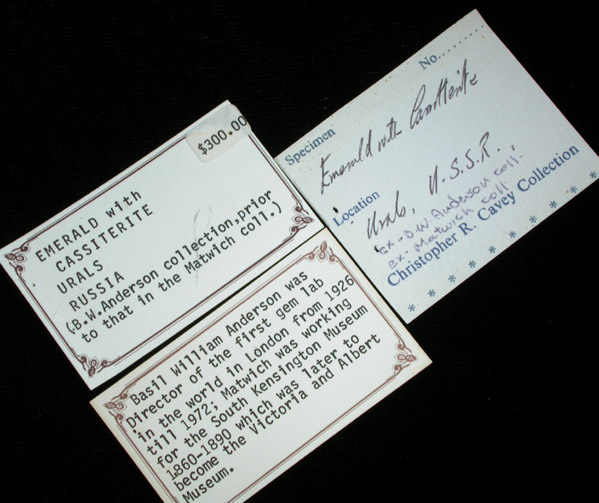 $300.00
EMERALD with
CASSITERITE
URALS
RUSSIA
(B.W.Anderson collection,prior
to that in the Matwich coll.)
No..........
Specimen
Emerald with Cassiterite
Location
Urals, U.S.S.R.
ex-B.W. Anderson coll.
ex. Matwich coll
Christopher R. Cavey Collection
Basil William Anderson was
Director of the first gem lab
in the world in London from 1926
till 1972; Matwich was working
for the South Kensington Museum
1860-1890 which was later to
become the Victoria and Albert
Museum.